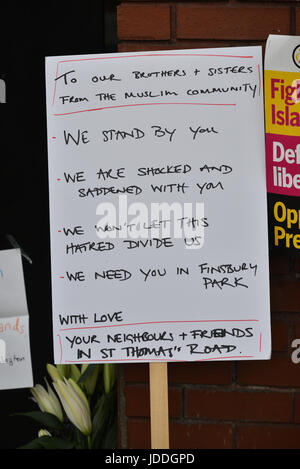 To our Brothers + Sisters
From the Muslim Community
- We stand by you
- We are shocked and
saddened with you
- We won't let this
hatred divide us
- We need you in Finsbury
Park
With love
Your neighbours + friends
in St Thomas's Road.
Figh
Isla
Def
libe
Opp
Pre
ands
ington
alamy stock photo